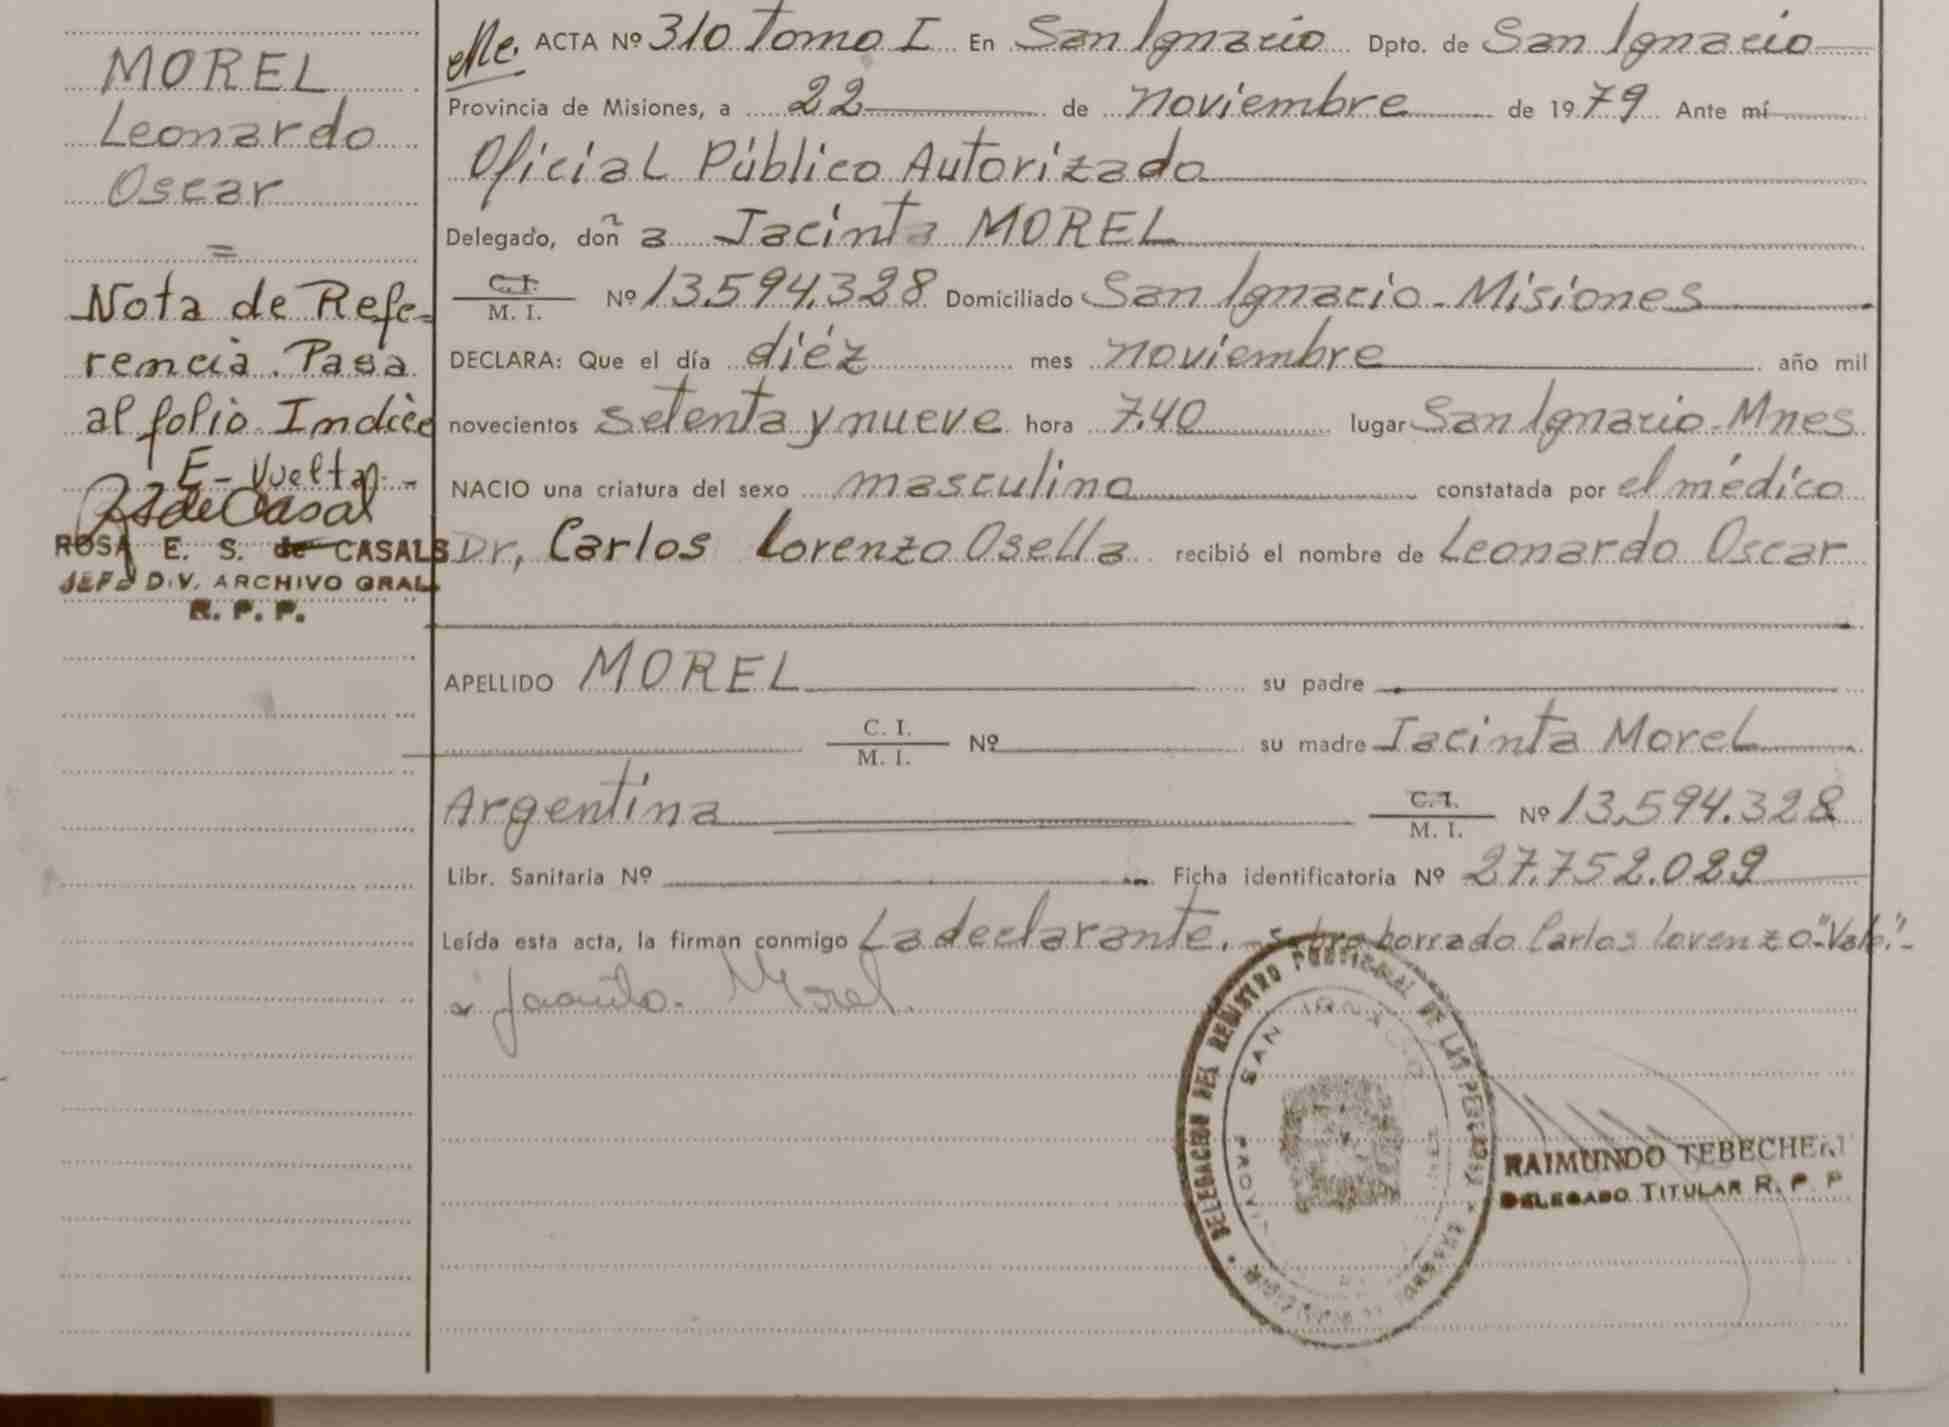 MOREL
Leonardo
Oscar
=
Nota de Refe-
rencia. Pasa
al folio Indice
E - Vuelta -
ROSA E. S. de CASALS
JEFE DIV. ARCHIVO GRAL
R. P. P.
ACTA Nº 310 Tomo I En San Ignacio Dpto. de San Ignacio
Provincia de Misiones, a 22 de noviembre de 1979 Ante mí
Oficial Público Autorizado
Delegado, doñ a Jacinta MOREL
C. I.
M. I. Nº 13.594.328 Domiciliado San Ignacio - Misiones
DECLARA: Que el día diéz mes noviembre año mil
novecientos setenta y nueve hora 7.40 lugar San Ignacio - Mnes
NACIO una criatura del sexo masculino constatada por el médico
Dr, Carlos Lorenzo Osella recibió el nombre de Leonardo Oscar
APELLIDO MOREL su padre
C. I.
M. I. Nº su madre Jacinta Morel
Argentina C. I.
M. I. Nº 13.594.328
Libr. Sanitaria Nº Ficha identificatoria Nº 27.752.029
Leída esta acta, la firman conmigo La declarante. - sobre borrado Carlos Lorenzo - "Vale." -
Jacinta Morel
DELEGACION DEL REGISTRO PROVINCIAL DE LAS PERSONAS
SAN IGNACIO
RAIMUNDO TEBECHERI
DELEGADO TITULAR R. P. P